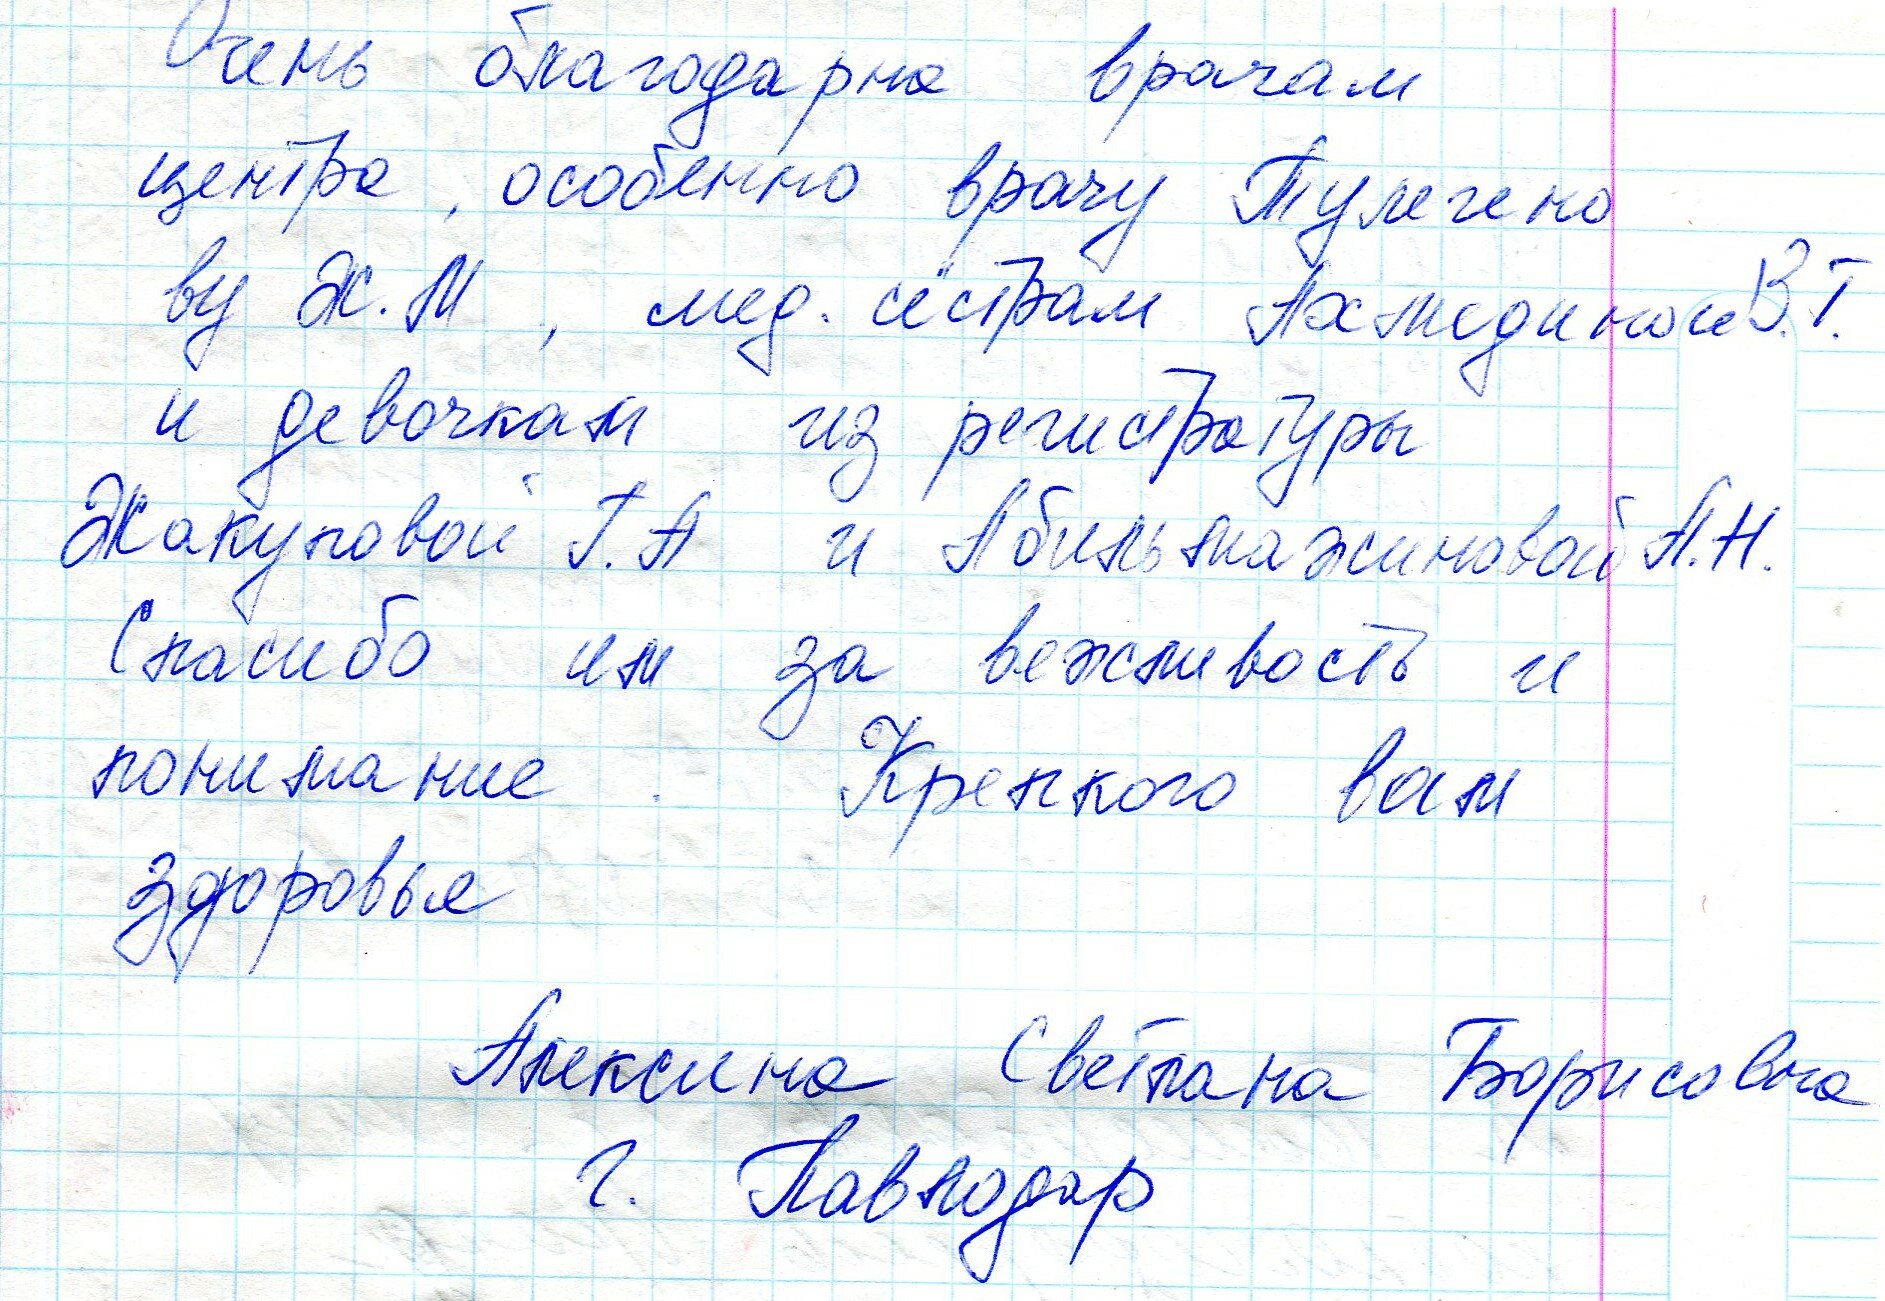 Очень благодарна врачам
центра, особенно врачу Тулегено
ву Ж.М, мед. сёстрам Ахмединой В.Т.
и девочкам из регистратуры
Жакуповой Г.А и Абильмажиновой А.Н.
Спасибо им за вежливость и
понимание. Крепкого вам
здоровья
Алексина Светлана Борисовна
г. Павлодар